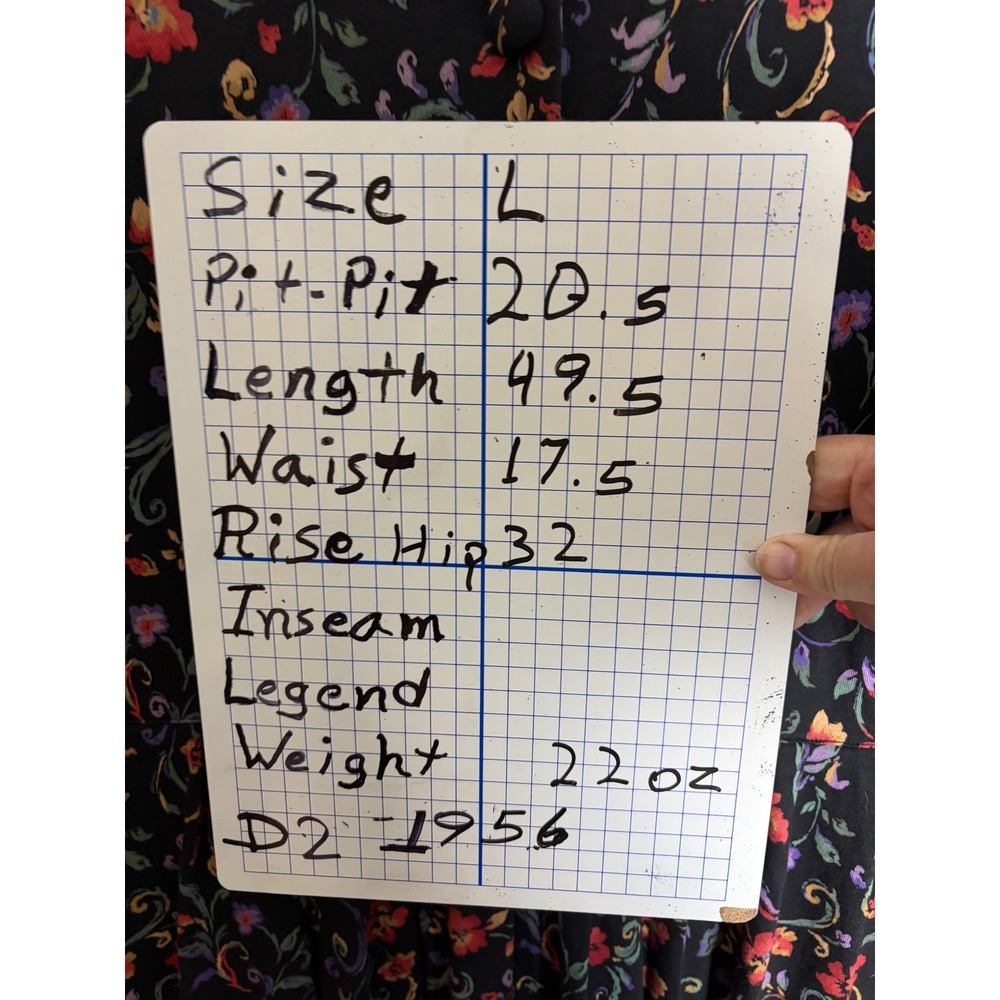 Size L
Pit-Pit 20.5
Length 49.5
Waist 17.5
Rise Hip 32
Inseam
Legend
Weight 22 oz
D2 -1956